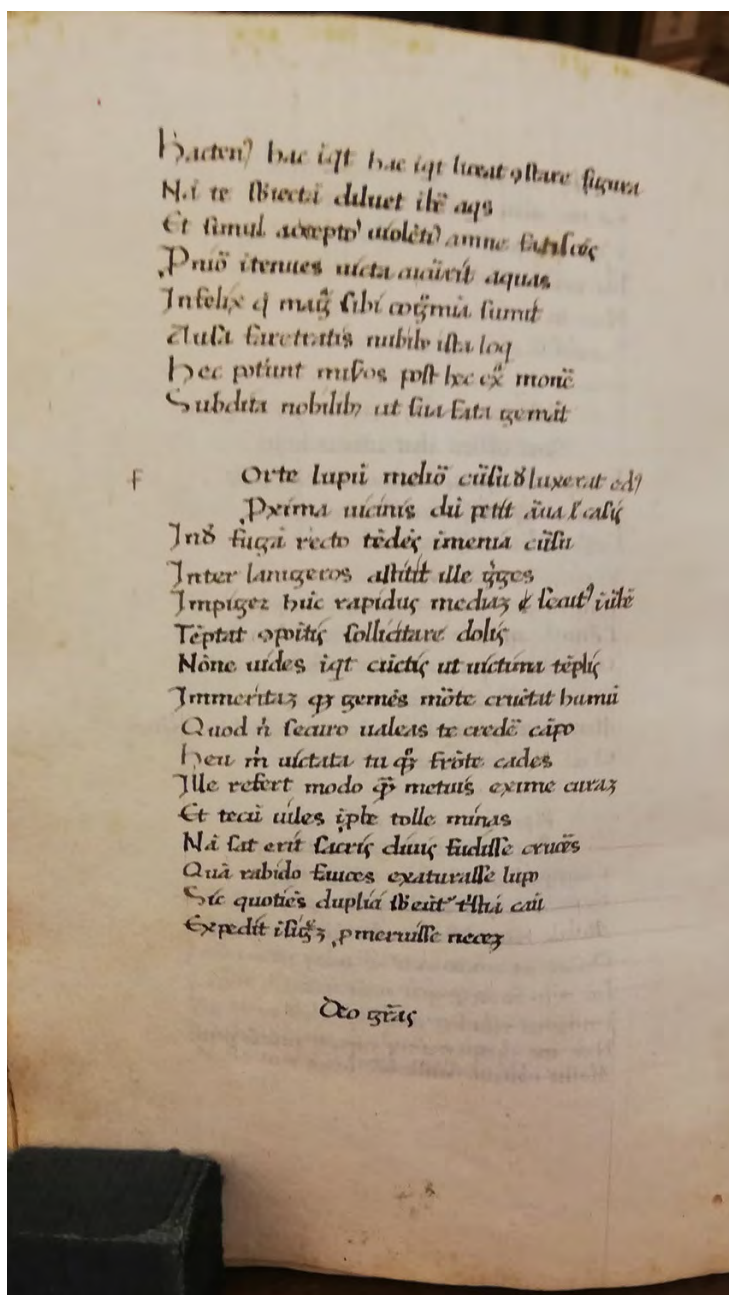 Hacten⁹ hac iqt hac iqt liceat ꝯstare figura
Nā te sbiectā diluet ibr̄ aqs
Et simul accepto
Pniō itenues uicta aquas
Infelix q̇ sibi sumit
Ausa faretratis nubibꝰ ista loq
Hec potiunt mis̄os post hec exͣ monē
Subdita nobilibꝫ ut sua fata gemāt
f Orte lupū meliō cūsu luxerat ed⁹
Pxima uicinis dū petit aūa l casiꝭ
Indͤ fugā recto tēdēꝭ imenia cūsu
Inter lanigeros astitit ille gͣges
Impigeꝫ hūc rapidus mediaꝫ
Tēptat ꝯpoītiꝭ sollicitare doliꝭ
Nōne uides iqt cūctiꝭ ut uictima tēpliꝭ
Immeritaꝫ qꝫ gemēs mōte cruētat humū
Quod n̄ securo ualeas te credē cāpo
Heu m̄ uictata tu qͦꝫ frōte cades
Ille refert modo qͣꝫ metuis exime curaꝫ
Et tecū uiles ip̄be tolle minas
Nā sat erit sacriꝭ diuiꝭ fudisse cruōēs
Quā rabido fauces exaturasse lupo
Sic quotiēs duplici
Expedit isigͤꝫ ꝓmeruisse neceꝫ
Deo gr̄aꝭ